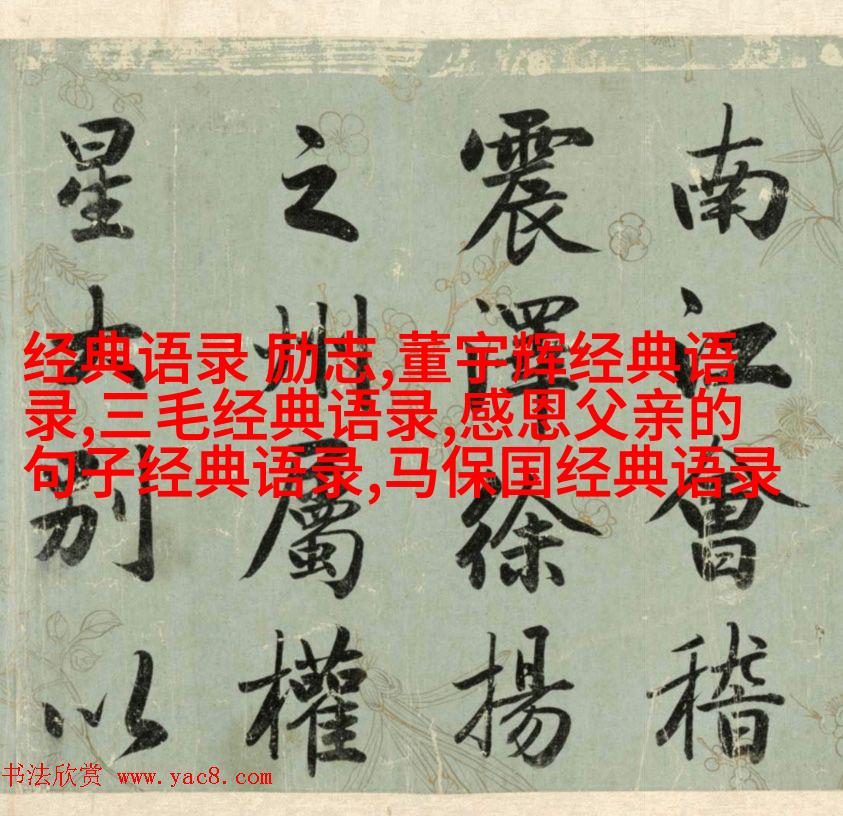 南江會稽
震澤徐揚
之州屬權
星土别以
经典语录 励志,董宇辉经典语
录,三毛经典语录,感恩父亲的
句子经典语录,马保国经典语录
书法欣赏 www.yac8.com